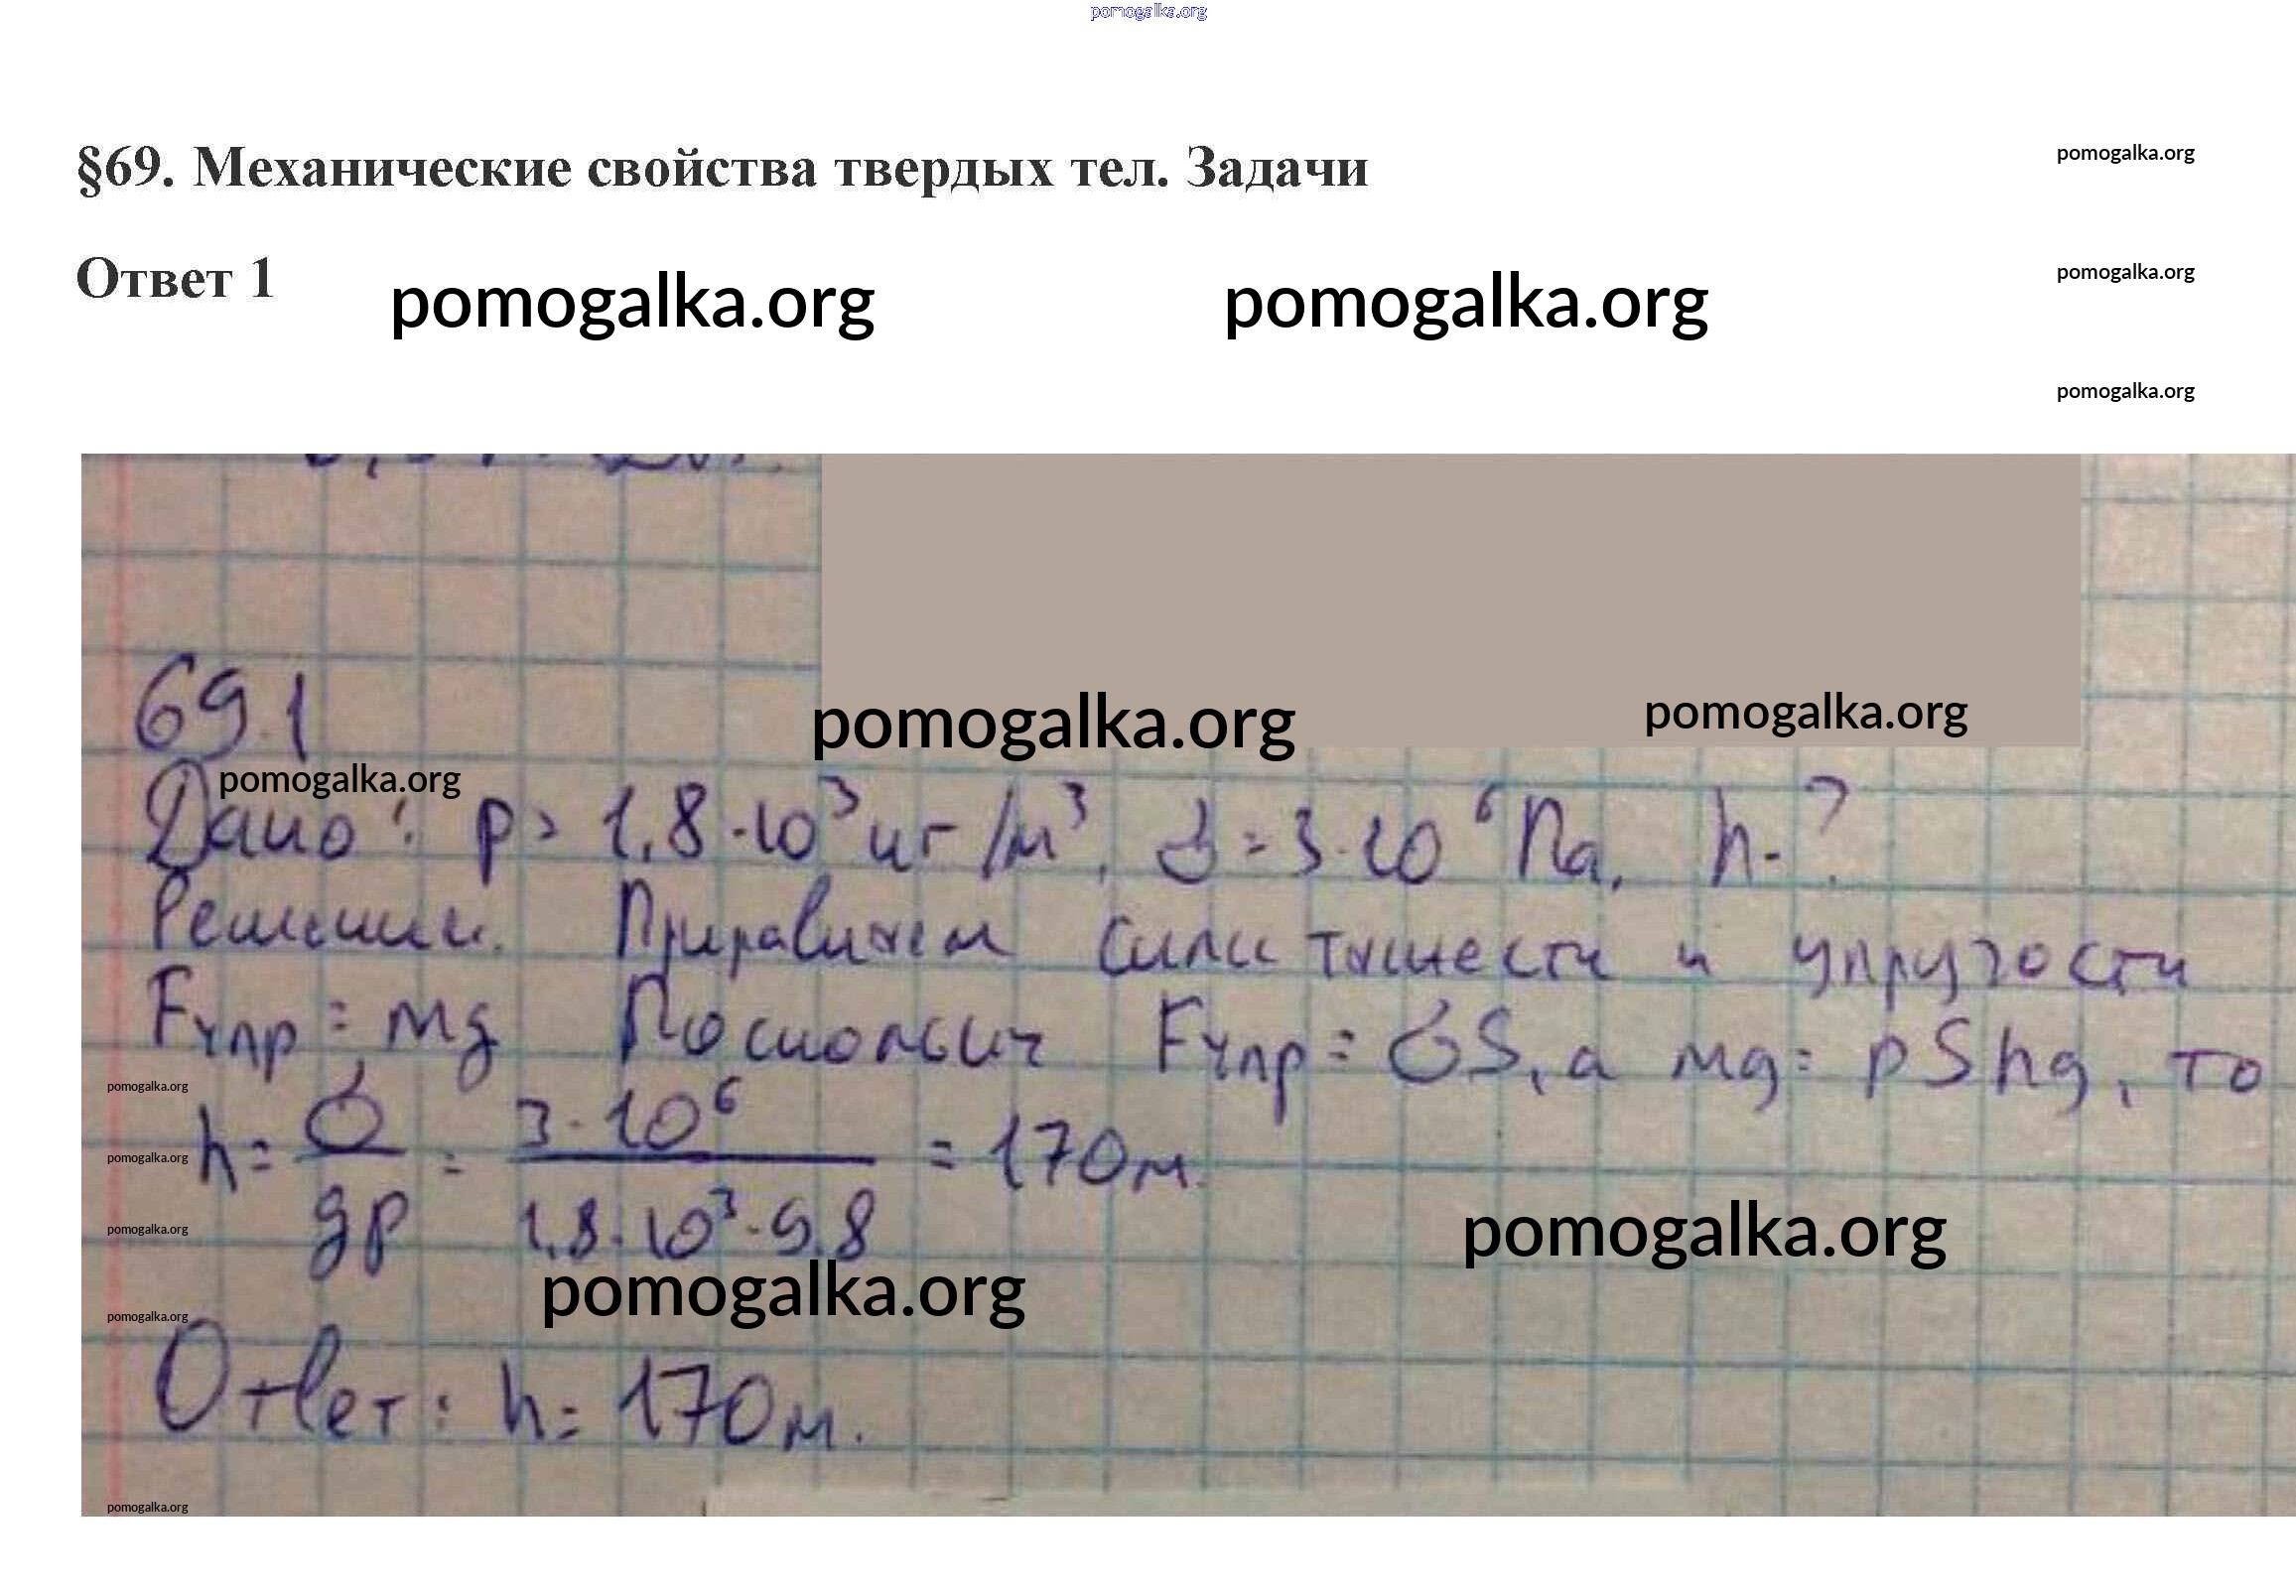 pomogalka.org
§69. Механические свойства твердых тел. Задачи
pomogalka.org
Ответ 1
pomogalka.org
pomogalka.org
pomogalka.org
pomogalka.org
69.1
pomogalka.org
pomogalka.org
pomogalka.org
Дано: ρ = 1,8·10³ кг/м³, σ = 3·10⁶ Па. h-?
Решение. Приравняем силы тяжести и упругости
Fупр = mg Поскольку Fупр = σS, а mg = ρShg, то
pomogalka.org
h = σ/gρ = 3·10⁶/1,8·10³·9,8 = 170м.
pomogalka.org
pomogalka.org
pomogalka.org
pomogalka.org
pomogalka.org
Ответ: h = 170м.
pomogalka.org